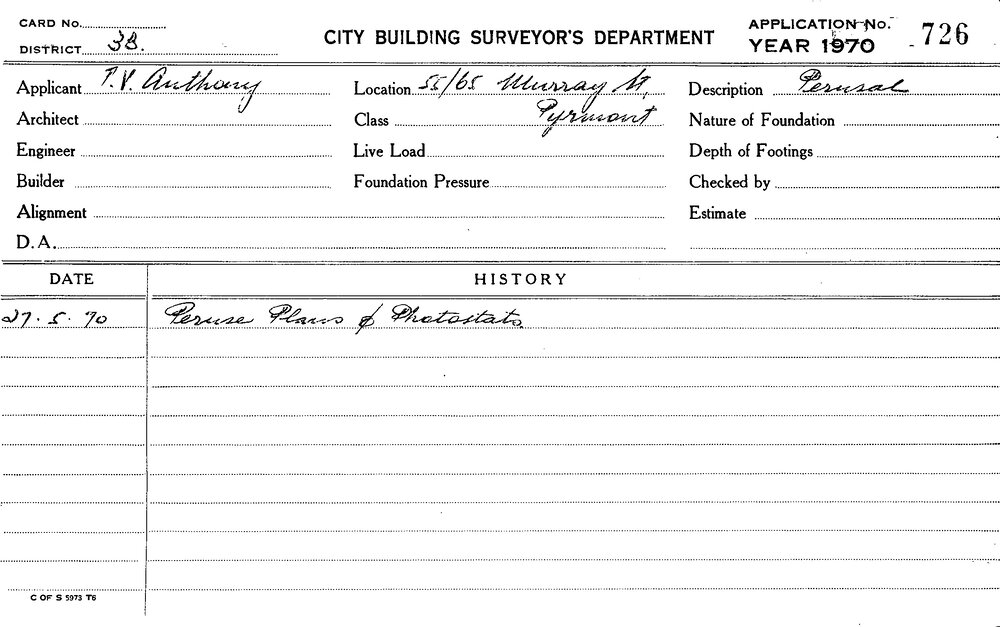 CARD No.
DISTRICT 3B.
CITY BUILDING SURVEYOR'S DEPARTMENT
APPLICATION No. 726
YEAR 1970
Applicant P.V. Anthony
Location 55/65 Murray St,
Description Perusal
Architect
Class Pyrmont
Nature of Foundation
Engineer
Live Load
Depth of Footings
Builder
Foundation Pressure
Checked by
Alignment
Estimate
D.A.
DATE HISTORY
27.5.70 Peruse Plans & Photostats.
C OF S 5973 T6